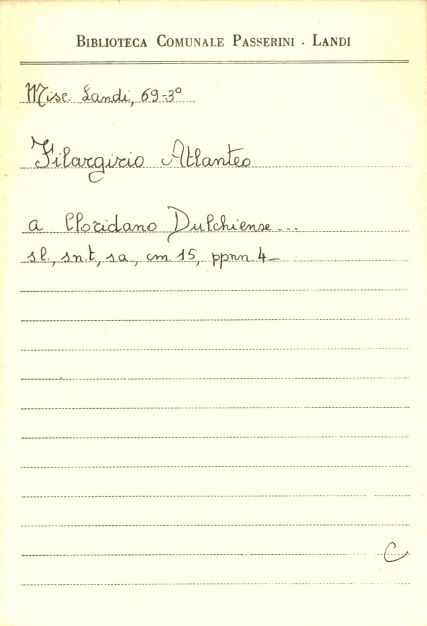 BIBLIOTECA COMUNALE PASSERINI - LANDI
Misc. Landi, 69-3°
Filargirio Atlanteo
a Cloridano Dulchiense ...
s.l., s.n.t., s.a., cm. 15, pp.nn. 4-
C